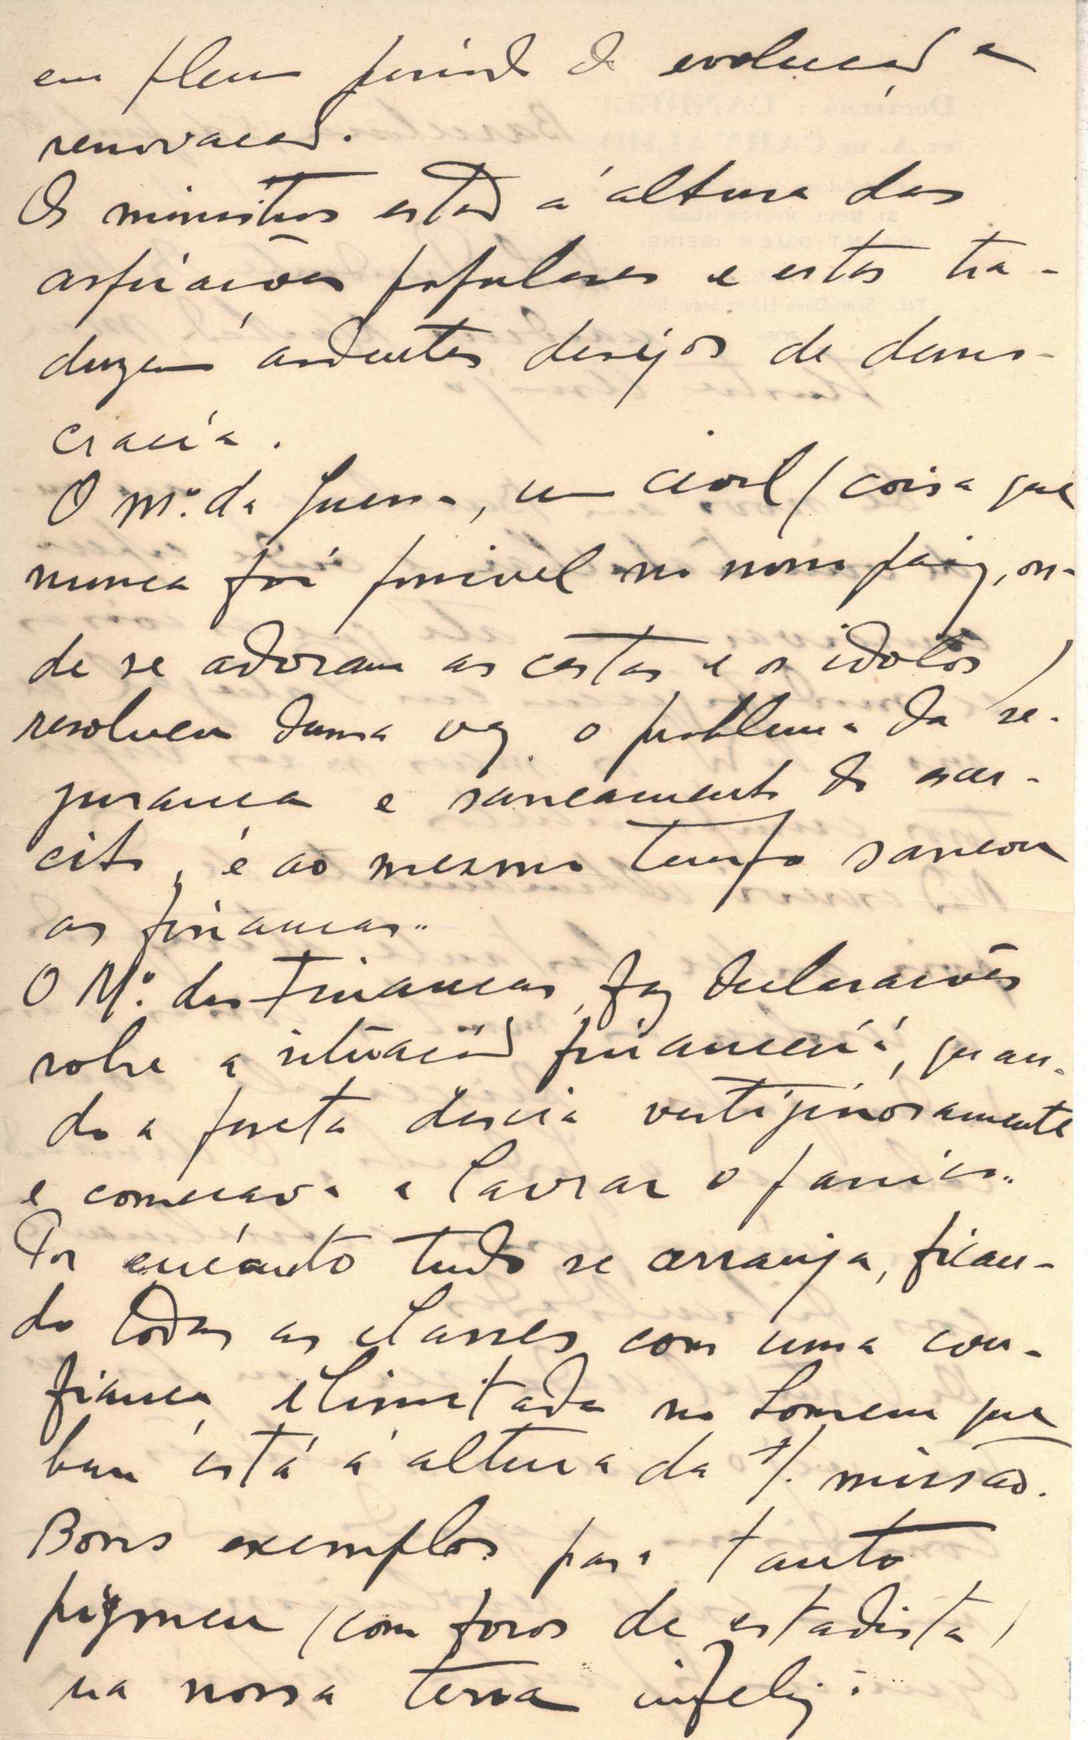 em pleno periodo de evolucão e
renovacão.
Os ministros estão á altura das
aspiracões populares e estas tra-
duzem ardentes desejos de demo-
cracia.
O Mº. da Guerra, um civil (coisa que
nunca foi possivel no nosso paiz, on-
de se adoram as castas e os idolos)
resolveu duma vez o problema da se-
gurança e saneamento do exer-
cito, e ao mesmo tempo saneou
as finanças..
O Mº. das Finanças, faz declaracões
sobre a situacão financeira, quan-
do a peseta descia vertiginosamente
e comecava a lavrar o panico..
Por encanto tudo se arranja, fican-
do todas as classes com uma con-
fiança illimitada no homem que
bem está á altura da s/. missão.
Bons exemplos para tanto
pigmeu (com foros de estadista)
na nossa terra infeliz: